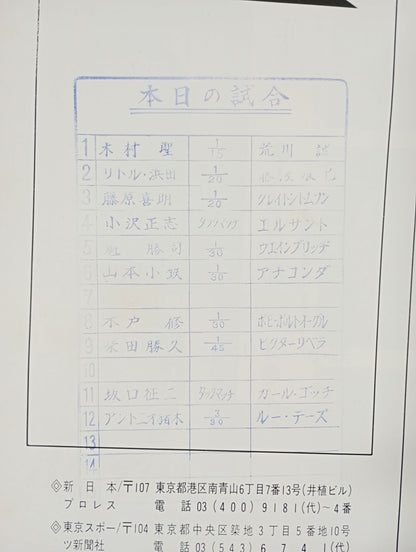 本日の試合
1 木村 聖 1/15 荒川 誠
2 リトル・浜田 1/20
3 藤原喜明 1/20
4 小沢正志 タッグマッチ エルサント
5 勝司 1/30 ウエインブリッヂ
6 山本小鉄 1/30 アナコンダ
7
8 木戸 修 1/30
9 柴田勝久 1/45 ビクターリベラ
10
11 坂口征二 タッグマッチ カール・ゴッチ
12 アントニオ猪木 3/90 ルー・テーズ
13
14
◇新日本/〒107 東京都港区南青山6丁目7番13号(井植ビル)
プロレス 電話 03(400)9181(代)~4番
◇東京スポー/〒104 東京都中央区築地3丁目5番地10号
ツ新聞社 電話 03(543)6741(代)